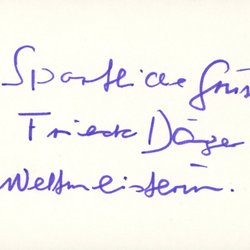 Sportliche Grüs
Frieda Däger
Weltmeisterin.